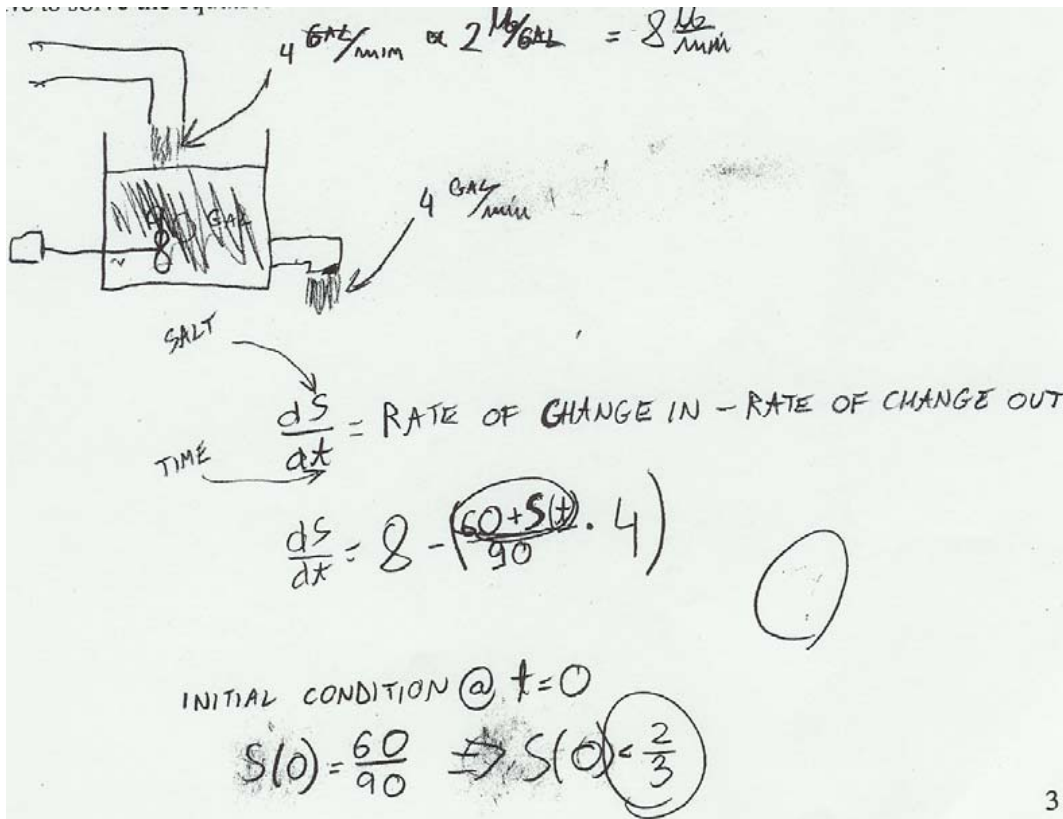 to solve the
4 GAL/min @ 2 lb/GAL = 8 lb/min
90 GAL
4 GAL/min
SALT
dS/dt = RATE OF CHANGE IN - RATE OF CHANGE OUT
TIME
dS/dt = 8 - (60+S(t)/90 · 4)
INITIAL CONDITION @ t=0
S(0) = 60/90 => S(0) = 2/3
3